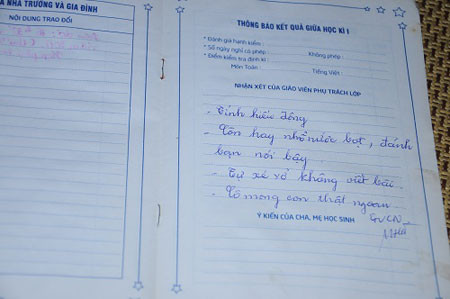 NHÀ TRƯỜNG VÀ GIA ĐÌNH
NỘI DUNG TRAO ĐỔI
THÔNG BÁO KẾT QUẢ GIỮA HỌC KÌ I
• Đánh giá hạnh kiểm :
• Số ngày nghỉ có phép : Không phép :
• Điểm kiểm tra định kì :
Môn Toán : Tiếng Việt :
NHẬN XÉT CỦA GIÁO VIÊN PHỤ TRÁCH LỚP
- Tính hiếu động
- Còn hay nhổ nước bọt, đánh
bạn nói bậy
- Tự xé vở không viết bài.
- Cô mong con thật ngoan
GVCN
Ý KIẾN CỦA CHA, MẸ HỌC SINH